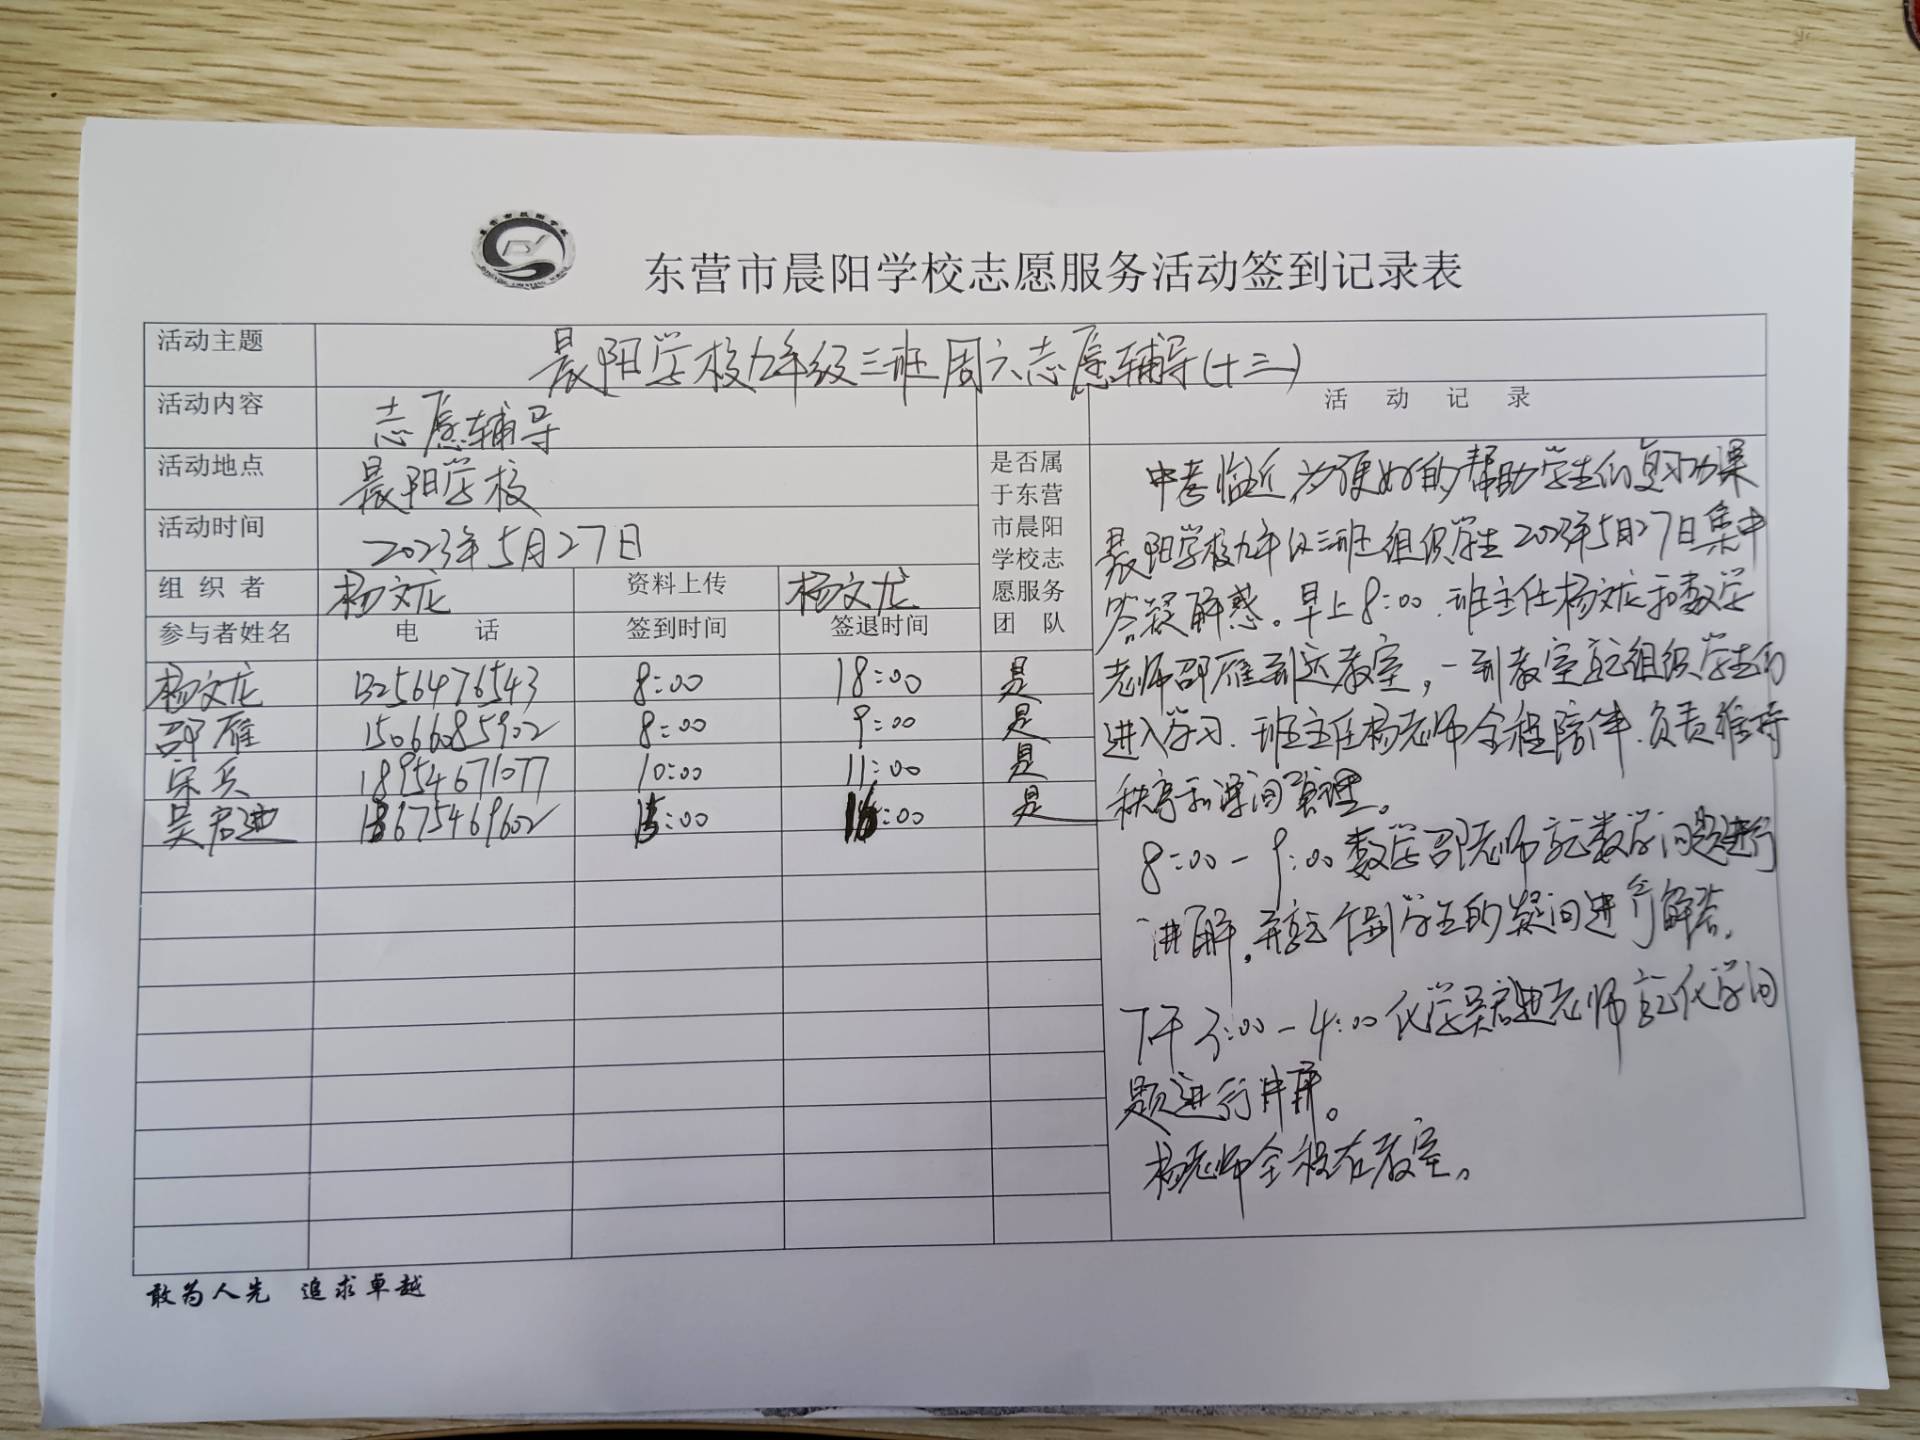 东营市晨阳学校志愿服务活动签到记录表
活动主题 晨阳学校九年级三班周六志愿辅导(十三)
活动内容 志愿辅导
活动地点 晨阳学校
活动时间 2023年5月27日
组织者 杨文龙 资料上传 杨文龙
参与者姓名 电话 签到时间 签退时间
是否属
于东营
市晨阳
学校志
愿服务
团队
杨文龙 13256476543 8:00 18:00 是
邵雁 15066085902 8:00 9:00 是
宋兵 18954671077 10:00 11:00 是
吴君迪 18675469602 15:00 16:00 是
活动记录
中考临近,为便好的帮助学生们复习功课
晨阳学校九年级三班组织学生2023年5月27日集中
答疑解惑。早上8:00,班主任杨文龙和数学
老师邵雁到达教室,一到教室就组织学生们
进入学习,班主任杨老师全程陪伴,负责维持
秩序和课间管理。
8:00-9:00数学邵老师就数学问题进行
讲解,并就个别学生的疑问进行解答,
下午3:00-4:00化学吴君迪老师就化学问
题进行讲解。
杨老师全程在教室。
敢为人先 追求卓越